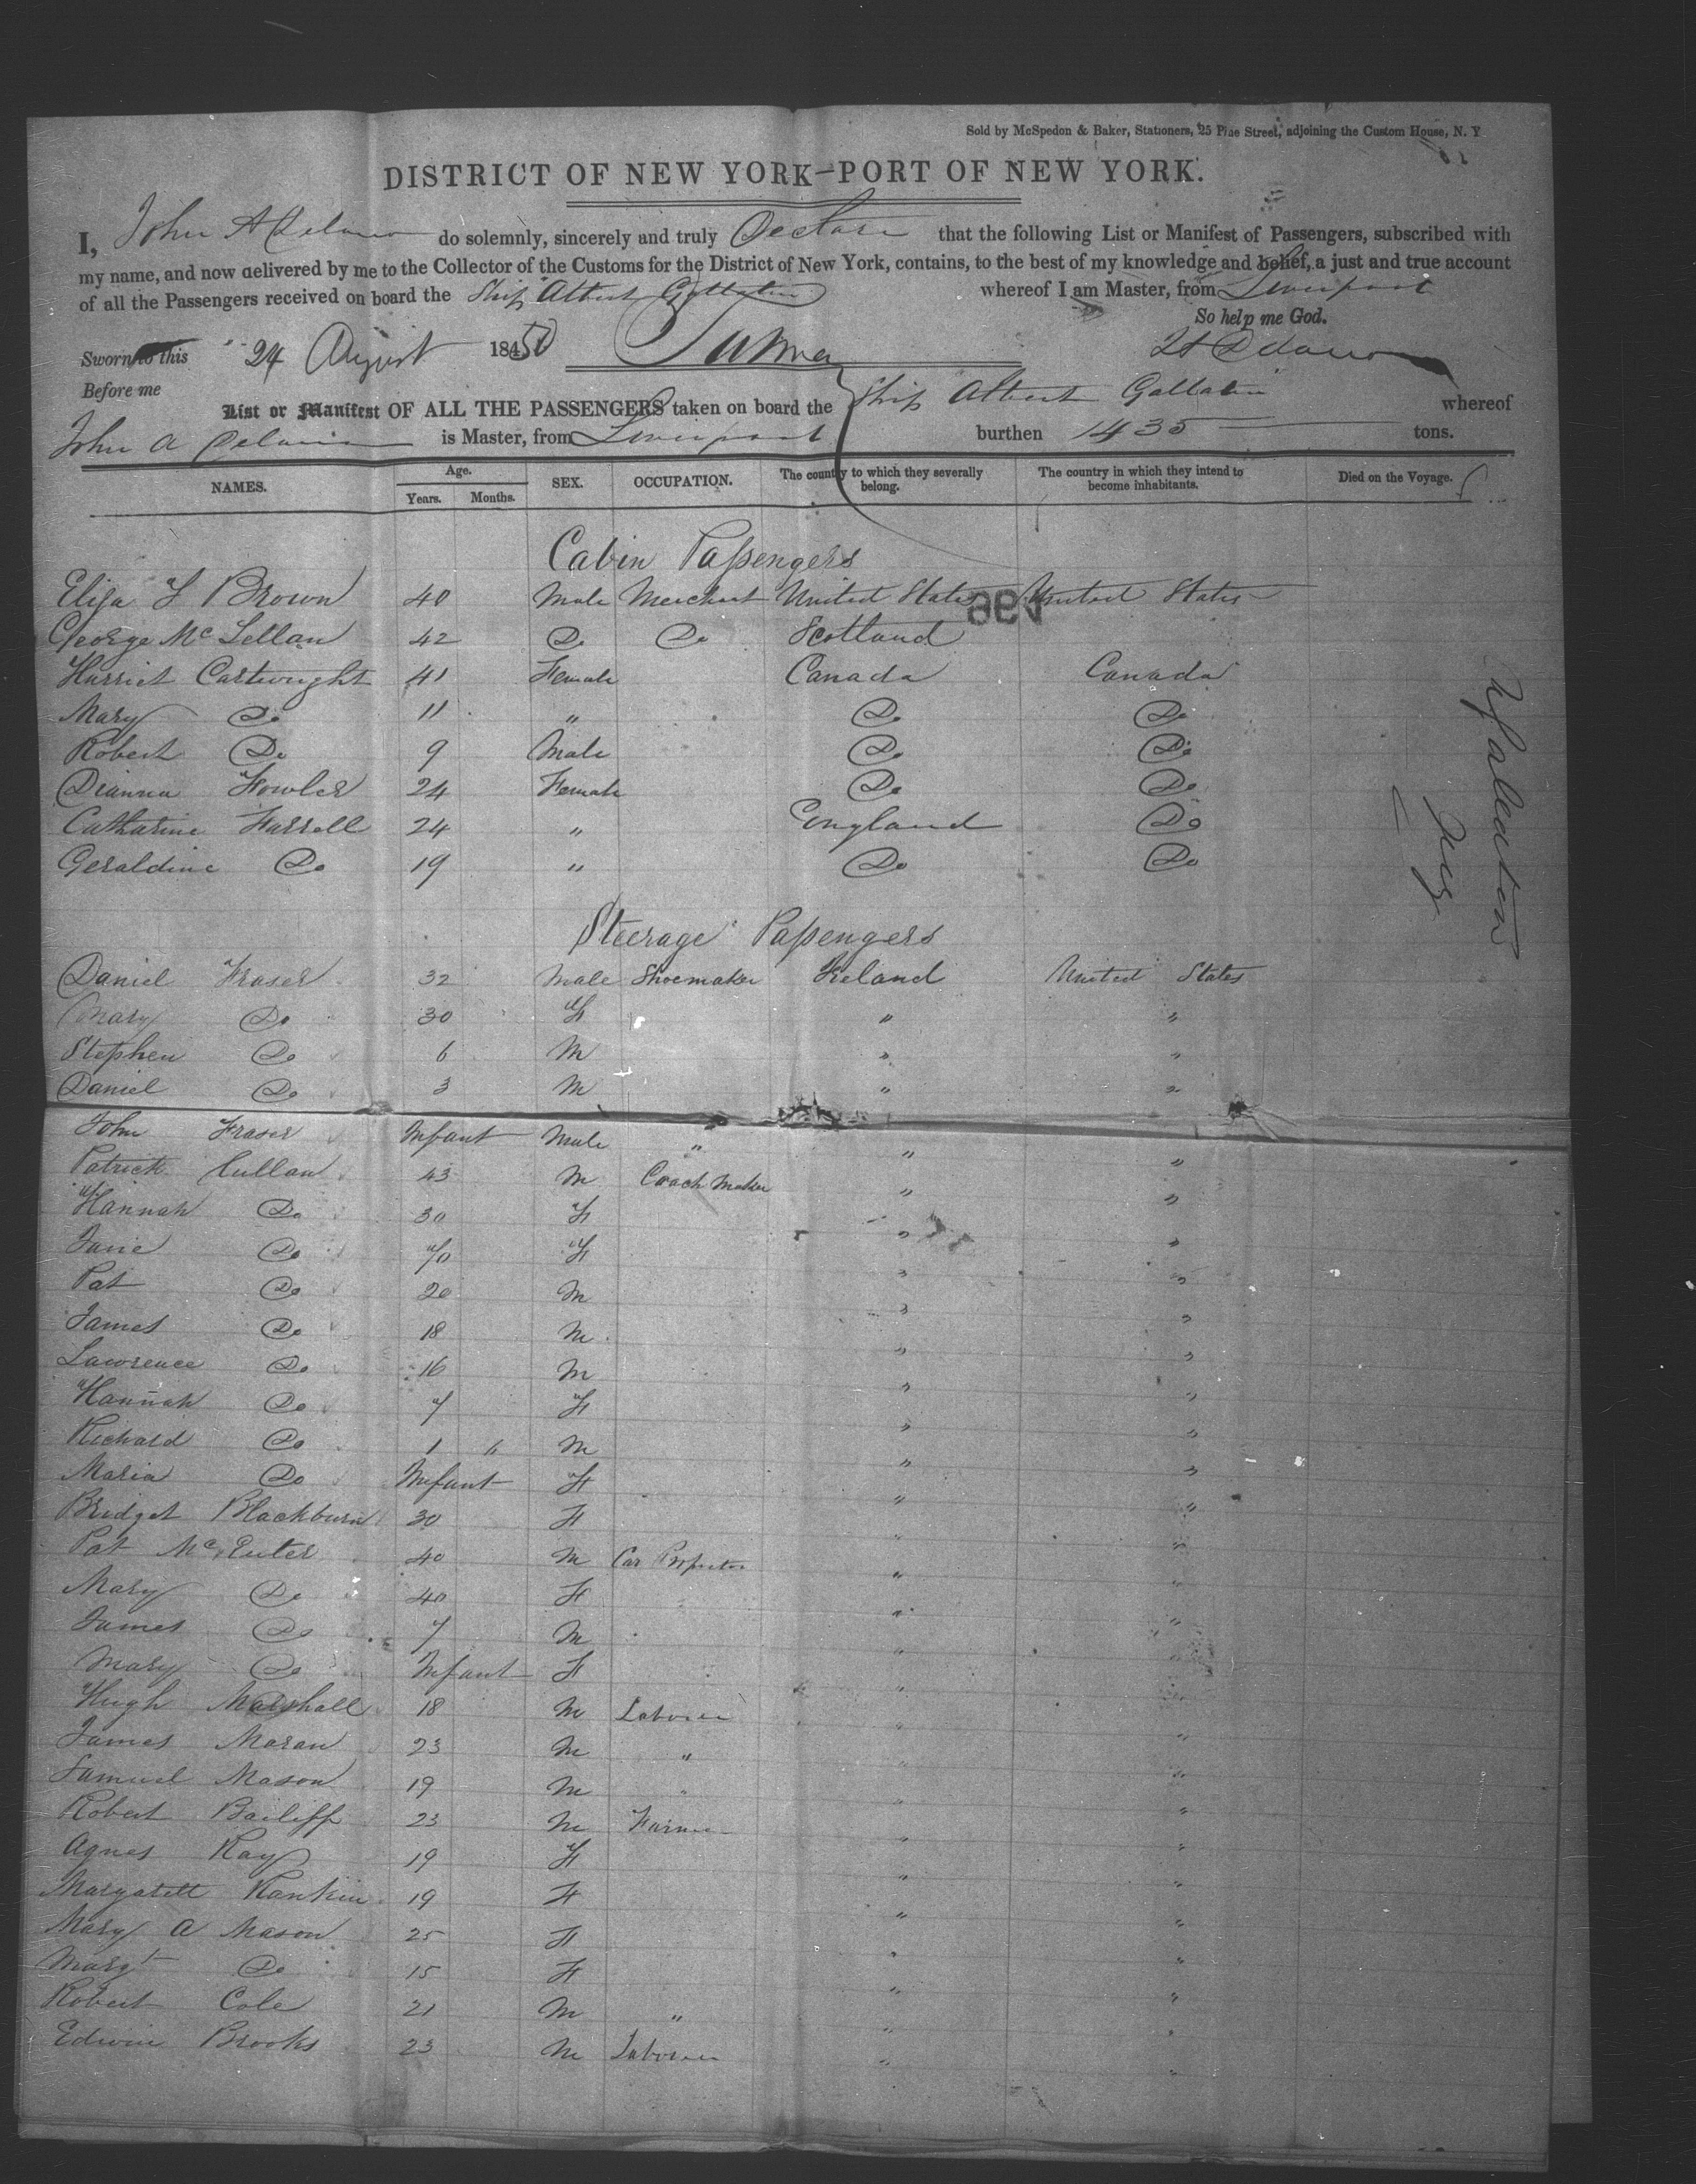 Sold by McSpedon & Baker, Stationers, 25 Pine Street, adjoining the Custom House, N. Y
DISTRICT OF NEW YORK—PORT OF NEW YORK.
I, John A Delano do solemnly, sincerely and truly Declare that the following List or Manifest of Passengers, subscribed with
my name, and now delivered by me to the Collector of the Customs for the District of New York, contains, to the best of my knowledge and belief, a just and true account
of all the Passengers received on board the Ship Albert Gallatin whereof I am Master, from Liverpool
So help me God.
Sworn to this 24 August 1850
Before me
List or Manifest OF ALL THE PASSENGERS taken on board the Ship Albert Gallatin whereof
John A Delano is Master, from Liverpool burthen 1435 tons.
NAMES. Age. Years. Months. SEX. OCCUPATION. The country to which they severally belong. The country in which they intend to become inhabitants. Died on the Voyage.
Cabin Passengers
Elisa F Brown 40 Male Merchant United States United States
George McLellan 42 Do Do Scotland
Harriet Cartwright 41 Female Canada Canada
Mary Do 11 " Do Do
Robert Do 9 Male Do Do
Dianna Fowler 24 Female Do Do
Catharine Farrell 24 " England Do
Geraldine Do 19 " Do Do
Steerage Passengers
Daniel Fraser 32 Male Shoemaker Ireland United States
Mary Do 30 F " "
Stephen Do 6 M " "
Daniel Do 3 M " "
John Fraser Infant Male " " "
Patrick Cullan 43 M Coach Maker " "
Hannah Do 30 F " "
Jane Do F " "
Pat Do 20 M " "
James Do 18 M " "
Lawrence Do 16 M " "
Hannah Do 7 F " "
Richard Do 1 6 M " "
Maria Do Infant F " "
Bridget Blackburn 30 F " "
Pat 40 M Car " "
Mary Do 40 F " "
James Do 7 M " "
Mary Do Infant F " "
Hugh Marshall 18 M Laborer " "
James Moran 23 M " " "
Samuel Mason 19 M " " "
Robert Bailiff 23 M Farmer " "
Agnes Kay 19 F " "
Margarett Rankin 19 F " "
Mary A Mason 25 F " "
Margt Do 15 F " "
Robert Cole 21 M " " "
Edwin Brooks 23 M Laborer " "